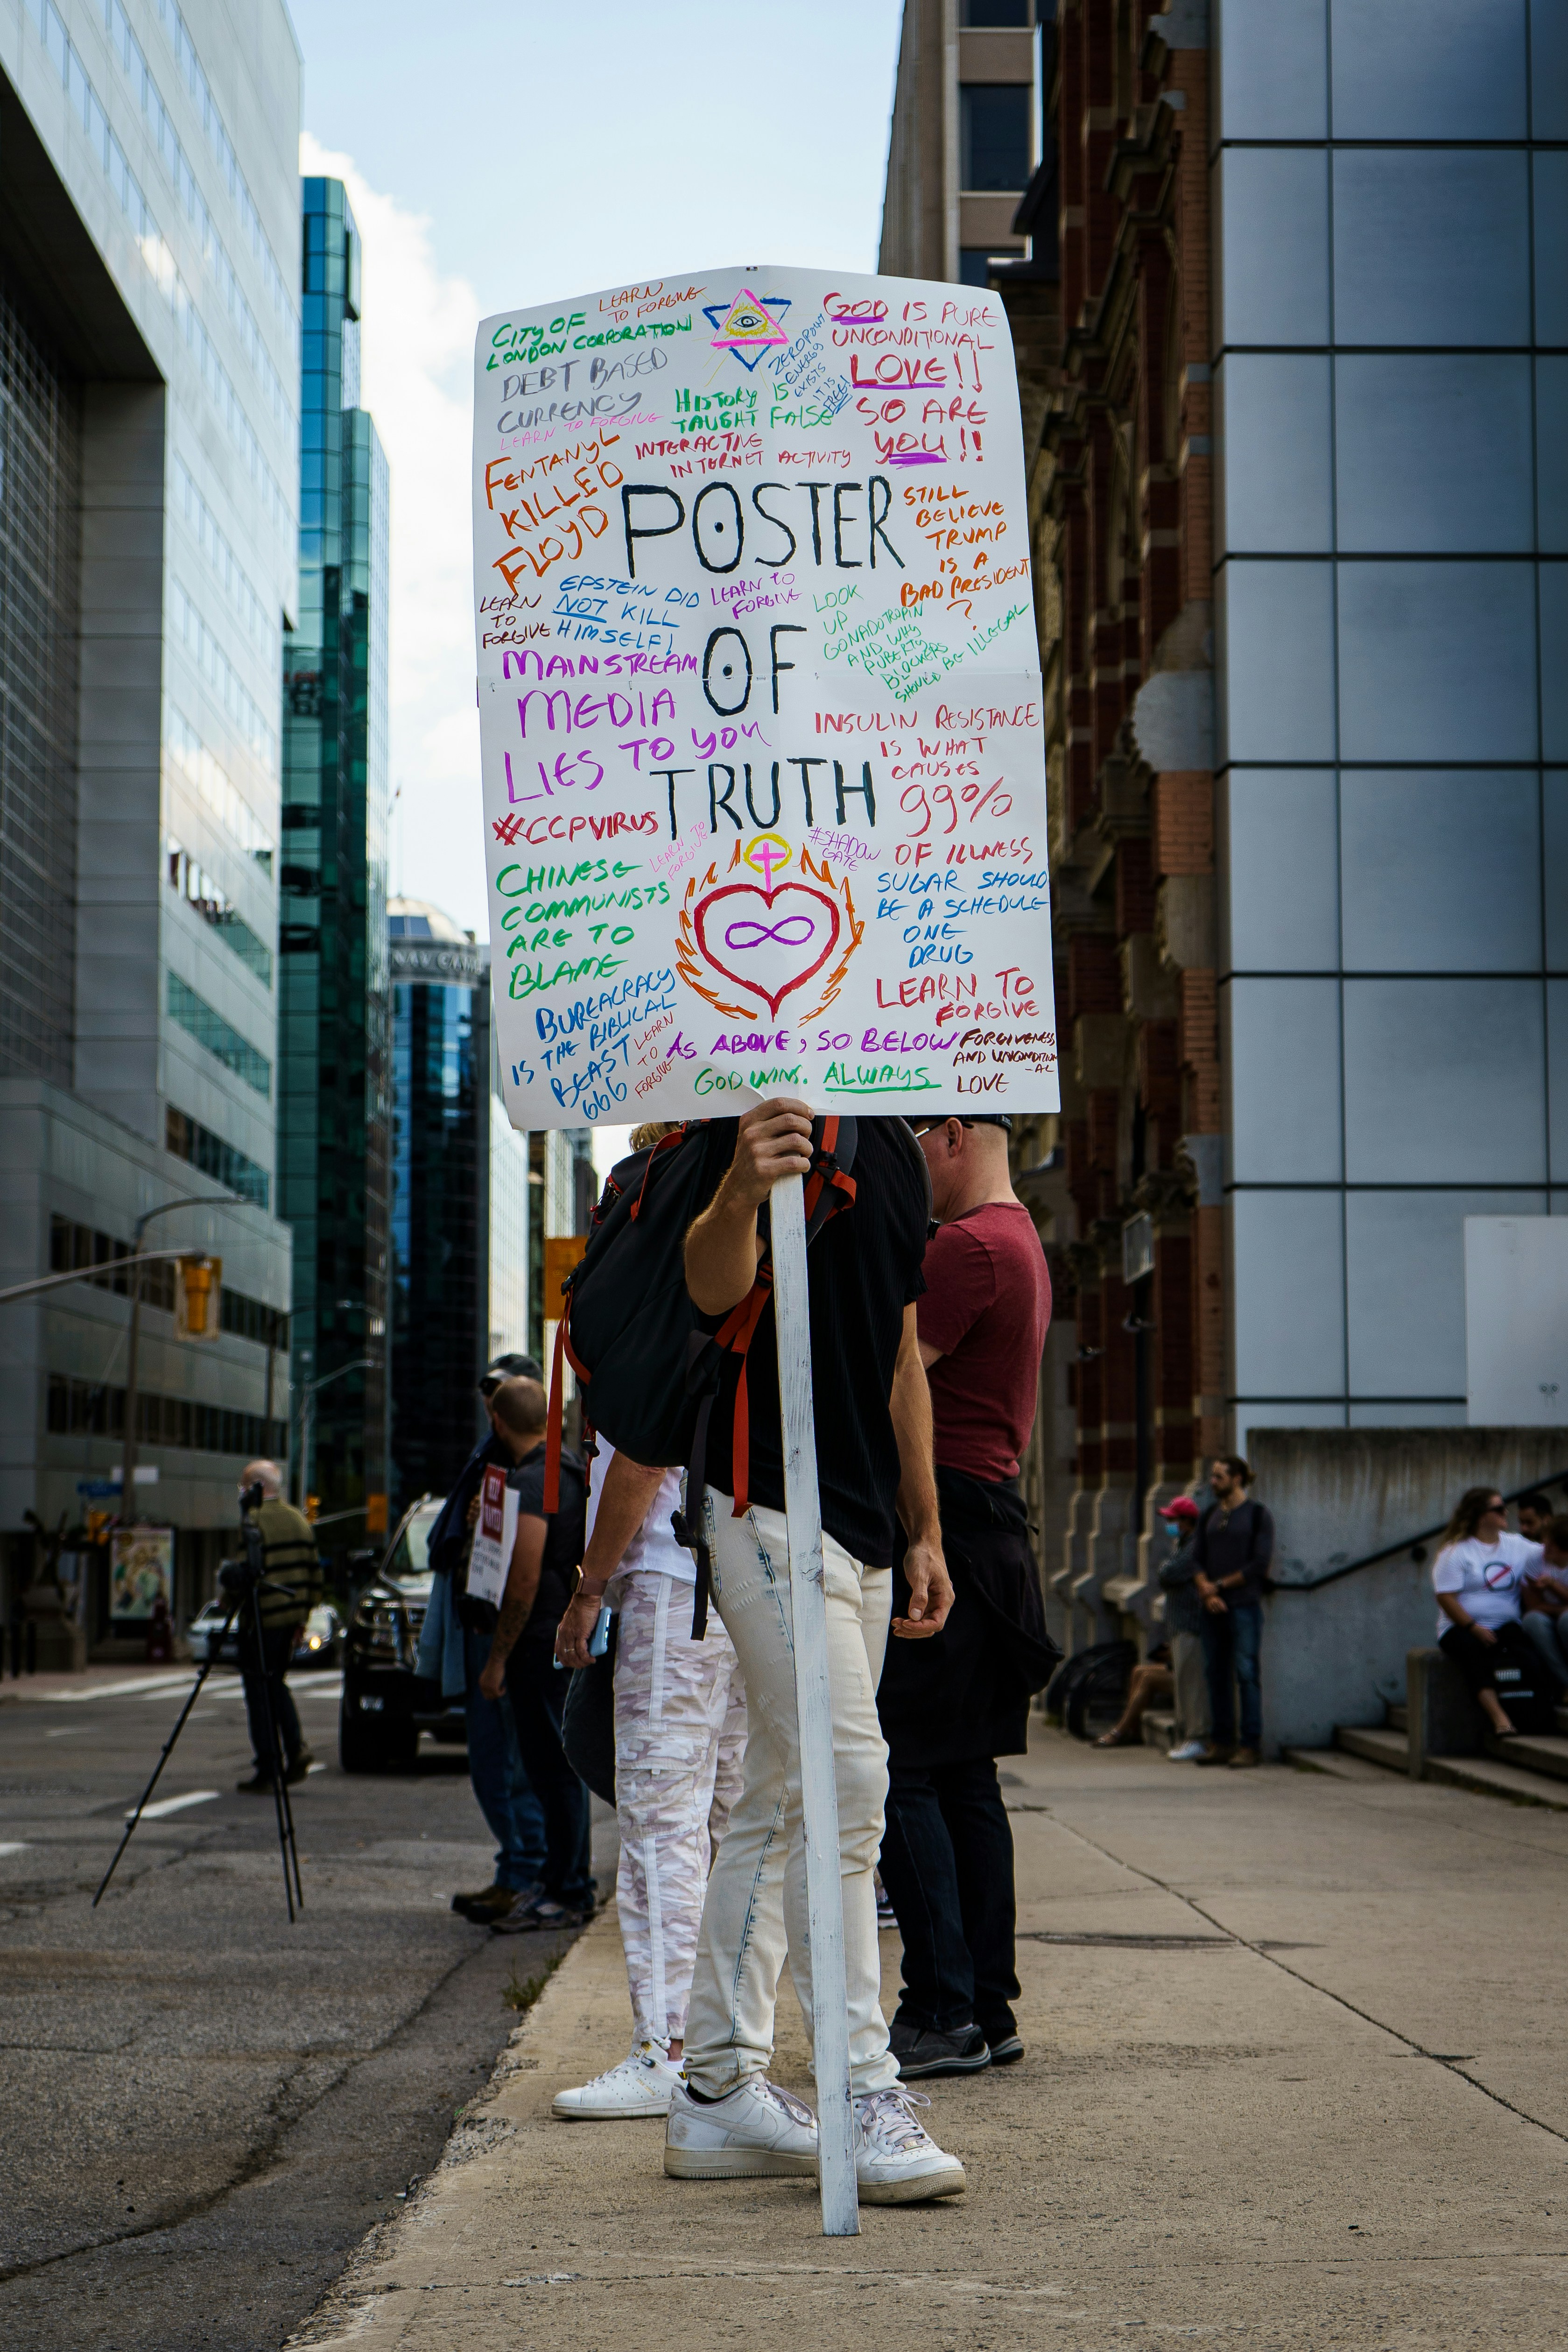 LEARN
TO FORGIVE
CITY OF
LONDON CORPORATION
DEBT BASED
CURRENCY
LEARN TO FORGIVE
ZEROPOINT
ENERGY
EXISTS
IT IS
FREE!
GOD IS PURE
UNCONDITIONAL
LOVE!!
SO ARE
YOU!!
HISTORY IS
TAUGHT FALSE
INTERACTIVE
INTERNET ACTIVITY
FENTANYL
KILLED
FLOYD
POSTER
OF
TRUTH
STILL
BELIEVE
TRUMP
IS A
BAD PRESIDENT
?
LEARN
TO
FORGIVE
EPSTEIN DID
NOT KILL
HIMSELF!
LEARN TO
FORGIVE
LOOK
UP
GONADOTROPIN
AND WHY
PUBERTY
BLOCKERS
SHOULD BE ILLEGAL
MAINSTREAM
MEDIA
LIES TO YOU
INSULIN RESISTANCE
IS WHAT
CAUSES
99%
OF ILLNESS
#CCPVIRUS
LEARN TO
FORGIVE
#SHADOW
GATE
CHINESE
COMMUNISTS
ARE TO
BLAME
SUGAR SHOULD
BE A SCHEDULE
ONE
DRUG
LEARN TO
FORGIVE
BUREACRACY
IS THE BIBLICAL
BEAST
666
LEARN
TO
FORGIVE
AS ABOVE, SO BELOW
GOD WINS. ALWAYS
FORGIVENESS
AND UNCONDITION
-AL
LOVE